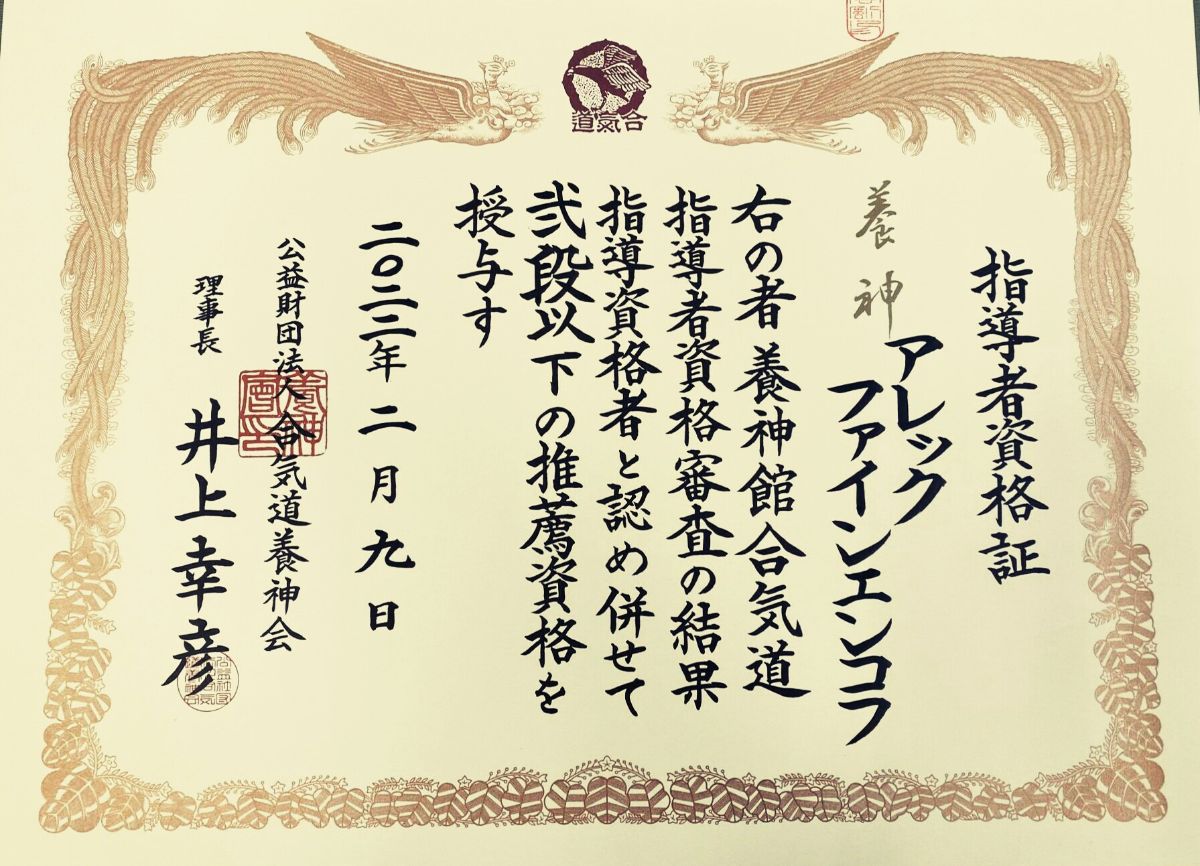 合氣道
指導者資格証
養神
アレック
ファインエンコラ
右の者養神館合気道
指導者資格審査の結果
指導資格者と認め併せて
弐段以下の推薦資格を
授与す
二〇二二年二月九日
公益財団法人合気道養神会
理事長 井上幸彦
養神會印